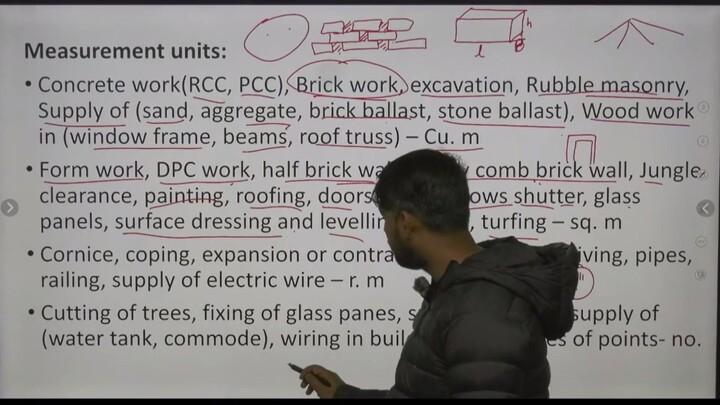 Measurement units:
• Concrete work(RCC, PCC), Brick work, excavation, Rubble masonry,
Supply of (sand, aggregate, brick ballast, stone ballast), Wood work
in (window frame, beams, roof truss) – Cu. m
• Form work, DPC work, half brick comb brick wall, Jungle
clearance, painting, roofing, doors shutter, glass
panels, surface dressing and turfing – sq. m
• Cornice, coping, expansion or pipes,
railing, supply of electric wire – r. m
• Cutting of trees, fixing of glass panes, supply of
(water tank, commode), wiring in of points- no.
l
B
h